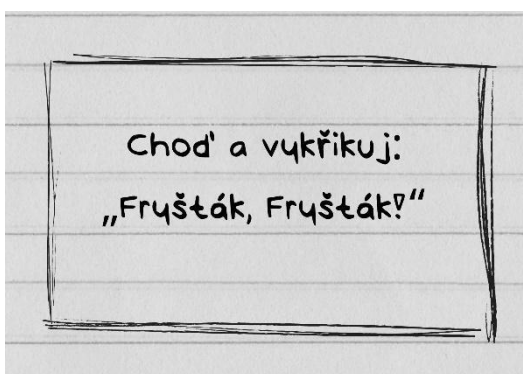 Choď a vykřikuj:
„Fryšták, Fryšták!“